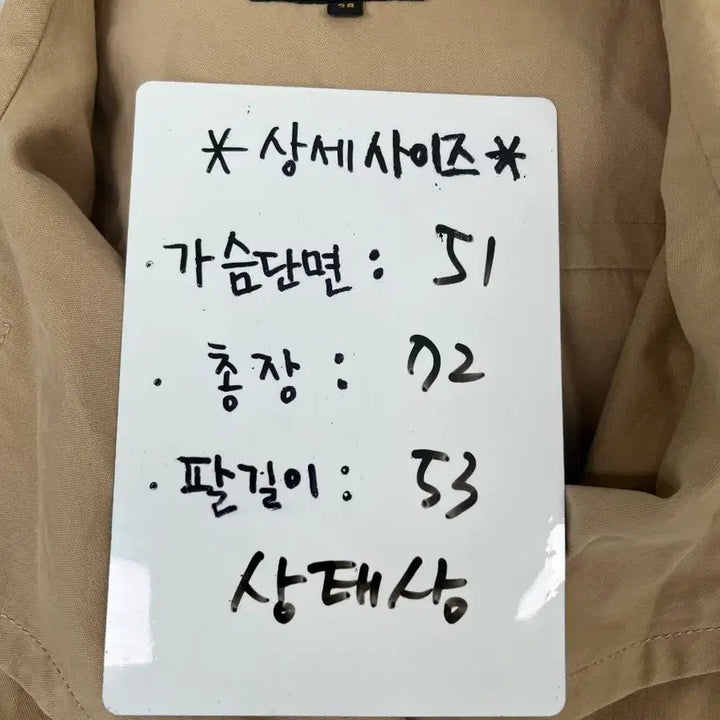 * 상세 사이즈 *
· 가슴단면 : 51
· 총장 : 72
· 팔길이 : 53
상태상